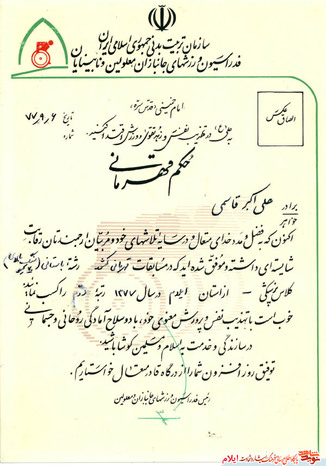 سازمان تربیت بدنی جمهوری اسلامی ایران
فدراسیون ورزشهای جانبازان معلولین و نابینایان
امام خمینی قدس سره
به علی (ع) در تهذیب نفس و زهد و تقوی و ورزش اقتدا کنید
تاریخ ۷۷,۹,۶
شماره
الصاق عکس
حکم قهرمانی
برادر علی اکبر قاسمی
خواهر
اکنون که به فضل و مدد خدای متعال و در سایه تلاشهای خود و مربیان ارجمندتان رقابت
شایسته‌ای داشته و موفق شده‌اید که در مسابقات قهرمانی کشور رشته باستانی
کلاس از استان ایلام در سال ۱۳۷۷ رتبه را کسب نمائید
خوب است با تهذیب نفس و پرورش معنوی خود، با دو سلاح آمادگی روحانی و جسمانی
در سازندگی و خدمت به اسلام و مسلمین کوشا باشید.
توفیق روز افزون شما را از درگاه قادر متعال خواستاریم.
رئیس فدراسیون ورزشهای جانبازان و معلولین
ایلام